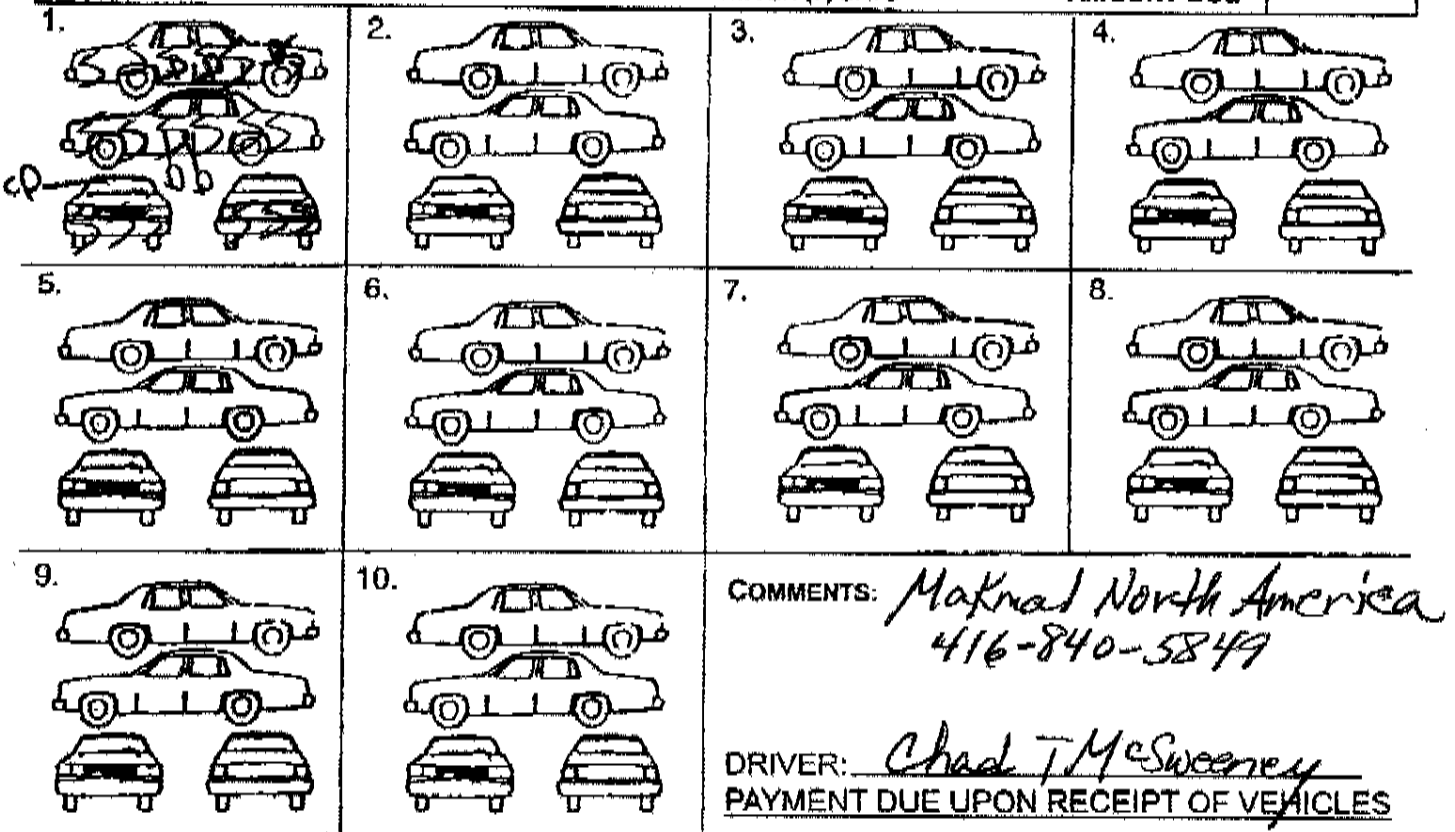 1.
2.
3.
4.
D D
cp
D D
5.
6.
7.
8.
9.
10.
COMMENTS: Maknal North America
416-840-5849
DRIVER: Chad T McSweeney
PAYMENT DUE UPON RECEIPT OF VEHICLES